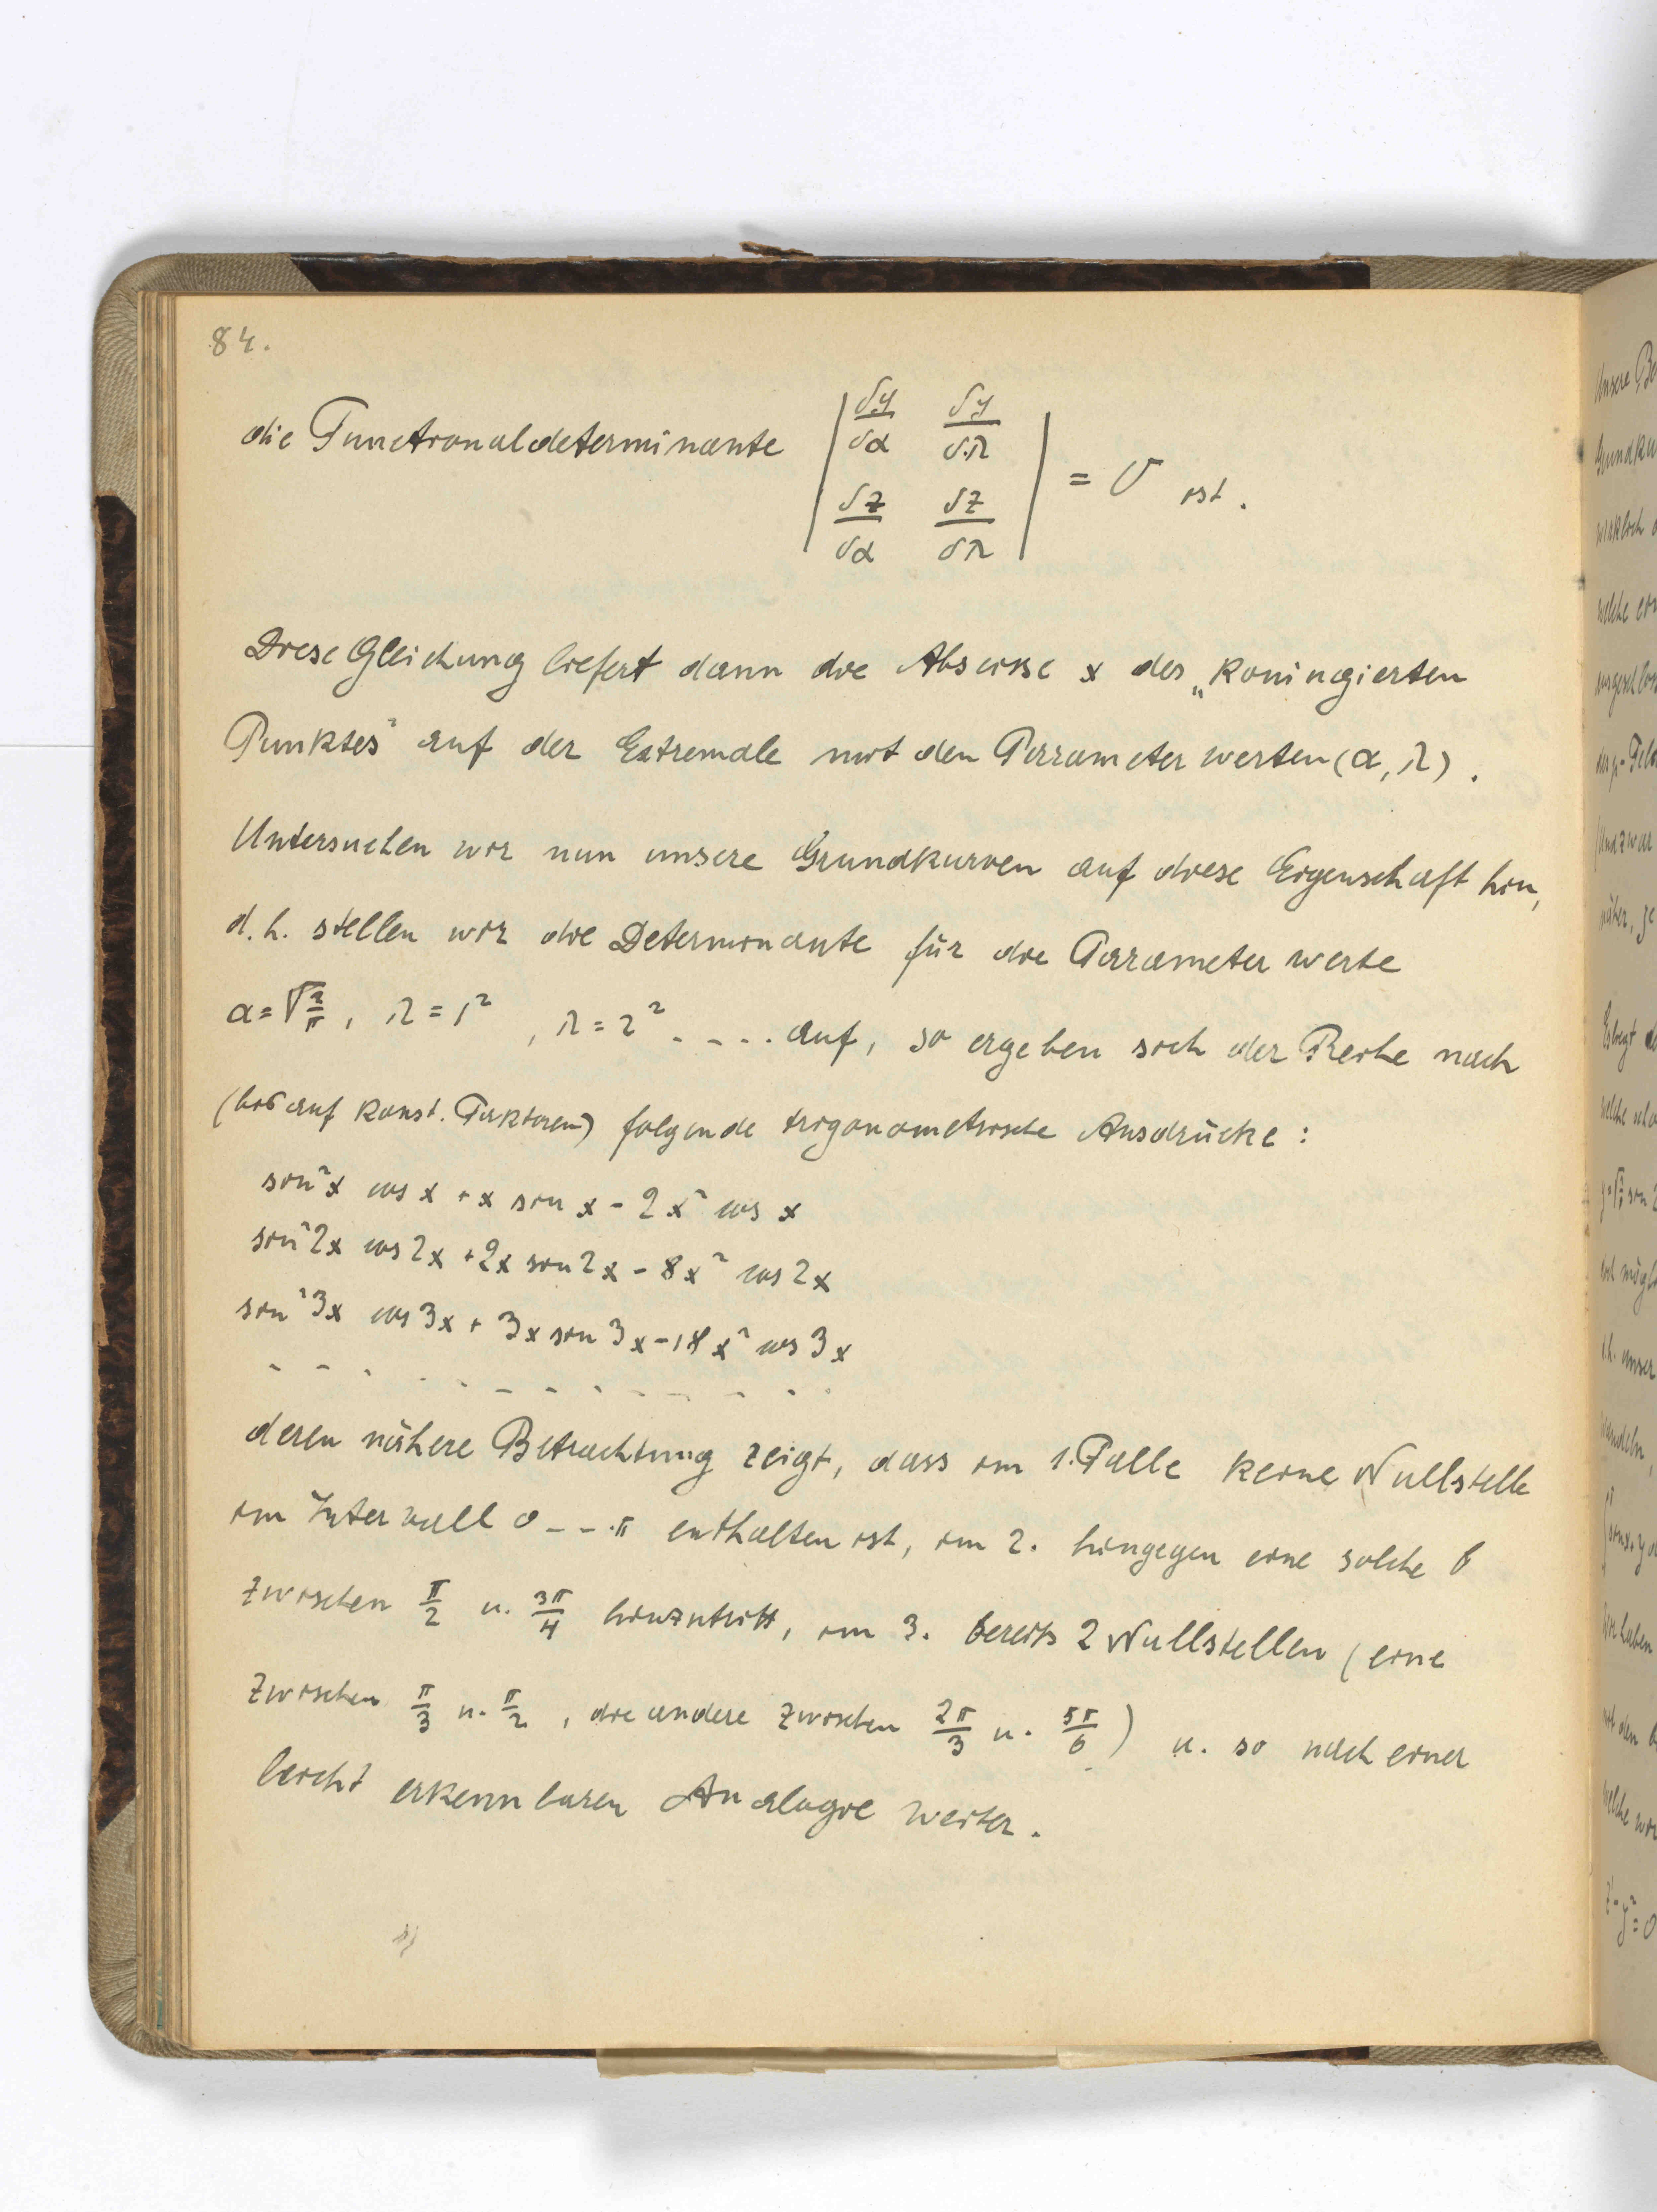 84.
die Functionaldeterminante | δy/δα δy/δλ ; δz/δα δz/δλ | = 0 ist.
Diese Gleichung liefert dann die Abscisse x des „konjugierten
Punktes" auf der Extremale mit den Parameterwerten (α, λ).
Untersuchen wir nun unsere Grundkurven auf diese Eigenschaft hin,
d.h. stellen wir die Determinante für die Parameterwerte
α = √(2/π), λ = 1², λ = 2² .... auf, so ergeben sich der Reihe nach
(bis auf konst. Faktoren) folgende trigonometrische Ausdrücke:
sin²x cos x + x sin x - 2x² cos x
sin²2x cos 2x + 2x sin 2x - 8x² cos 2x
sin²3x cos 3x + 3x sin 3x - 18x² cos 3x
- - - - - - - - - - - -
deren nähere Betrachtung zeigt, dass im 1. Falle keine Nullstelle
im Intervall 0 - - - π enthalten ist, im 2. hingegen eine solche
zwischen π/2 u. 3π/4 hinzutritt, im 3. bereits 2 Nullstellen (eine
zwischen π/3 u. π/2, die andere zwischen 2π/3 u. 5π/6) u. so nach einer
leicht erkennbaren Analogie weiter.